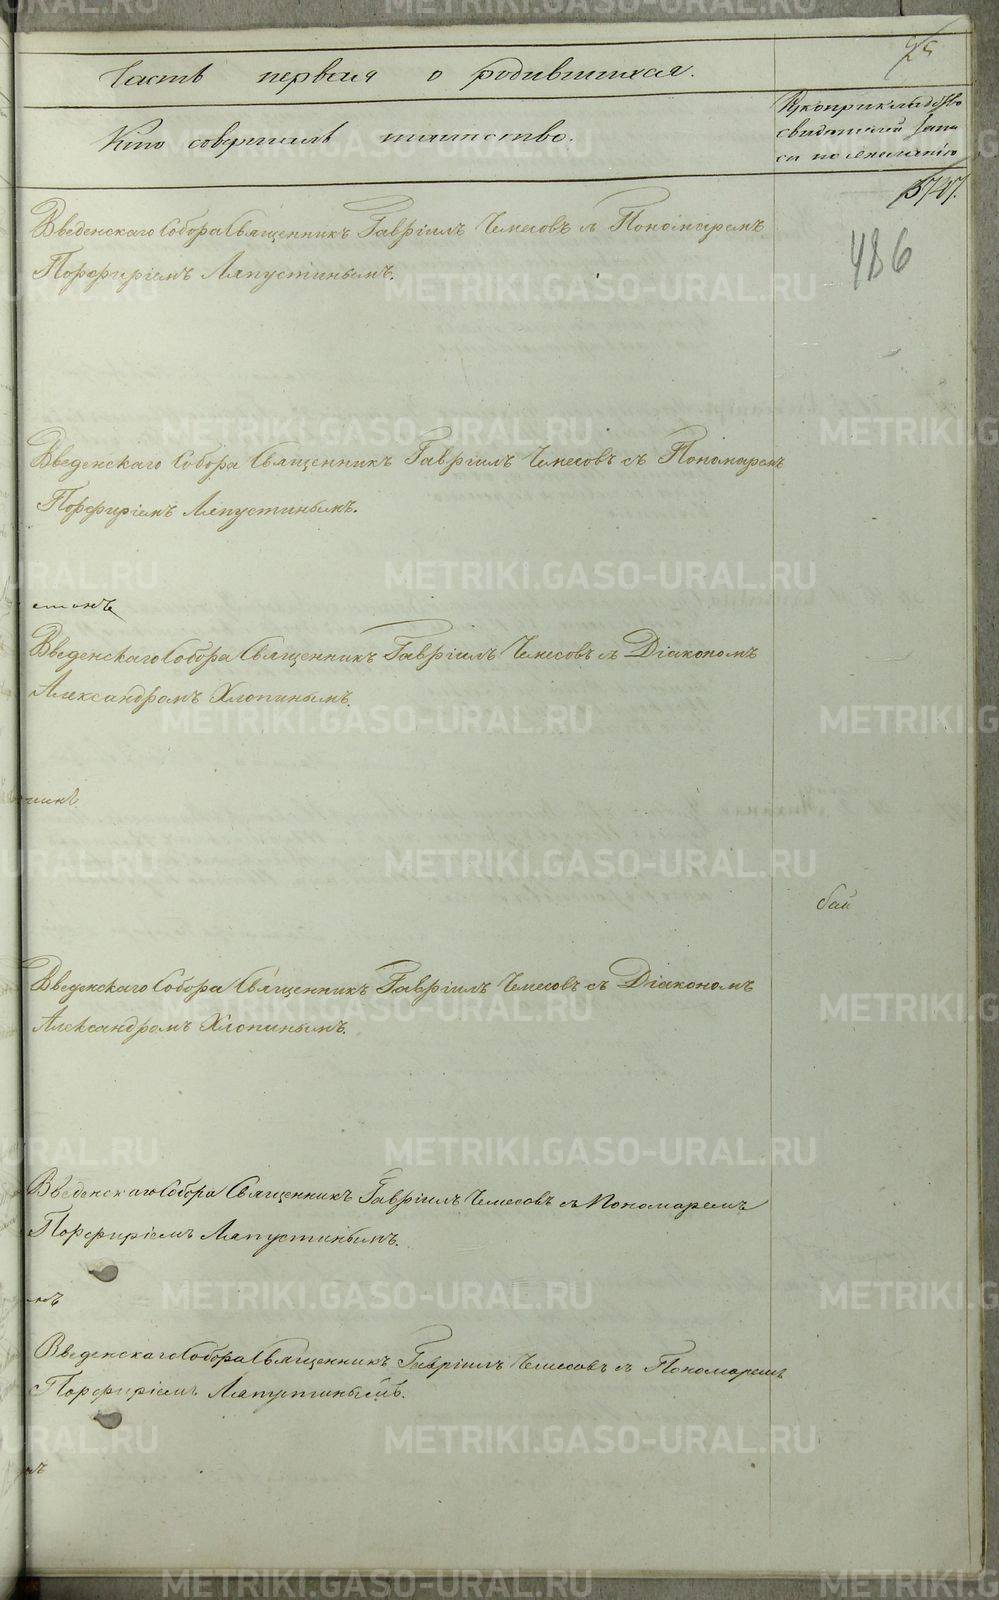 Часть первая о родившихся.
Кто совершилъ таинство.
Рукоприкладство
свидѣтелей запи
си по желанію
Введенскаго Собора Священникъ Гавріилъ Чемесовъ съ Пономаремъ
486
Порфиріемъ Ляпустинымъ.
Введенскаго Собора Священникъ Гавріилъ Чемесовъ съ Пономаремъ
Порфиріемъ Ляпустинымъ.
Введенскаго Собора Священникъ Гавріилъ Чемесовъ съ Діакономъ
Александромъ Хлопинымъ.
никъ
Введенскаго Собора Священникъ Гавріилъ Чемесовъ съ Діакономъ
Александромъ Хлопинымъ.
Введенскаго Собора Священникъ Гавріилъ Чемесовъ съ Пономаремъ
Порфиріемъ Ляпустинымъ.
Введенскаго Собора Священникъ Гавріилъ Чемесовъ съ Пономаремъ
Порфиріемъ Ляпустинымъ.
METRIKI.GASO-URAL.RU